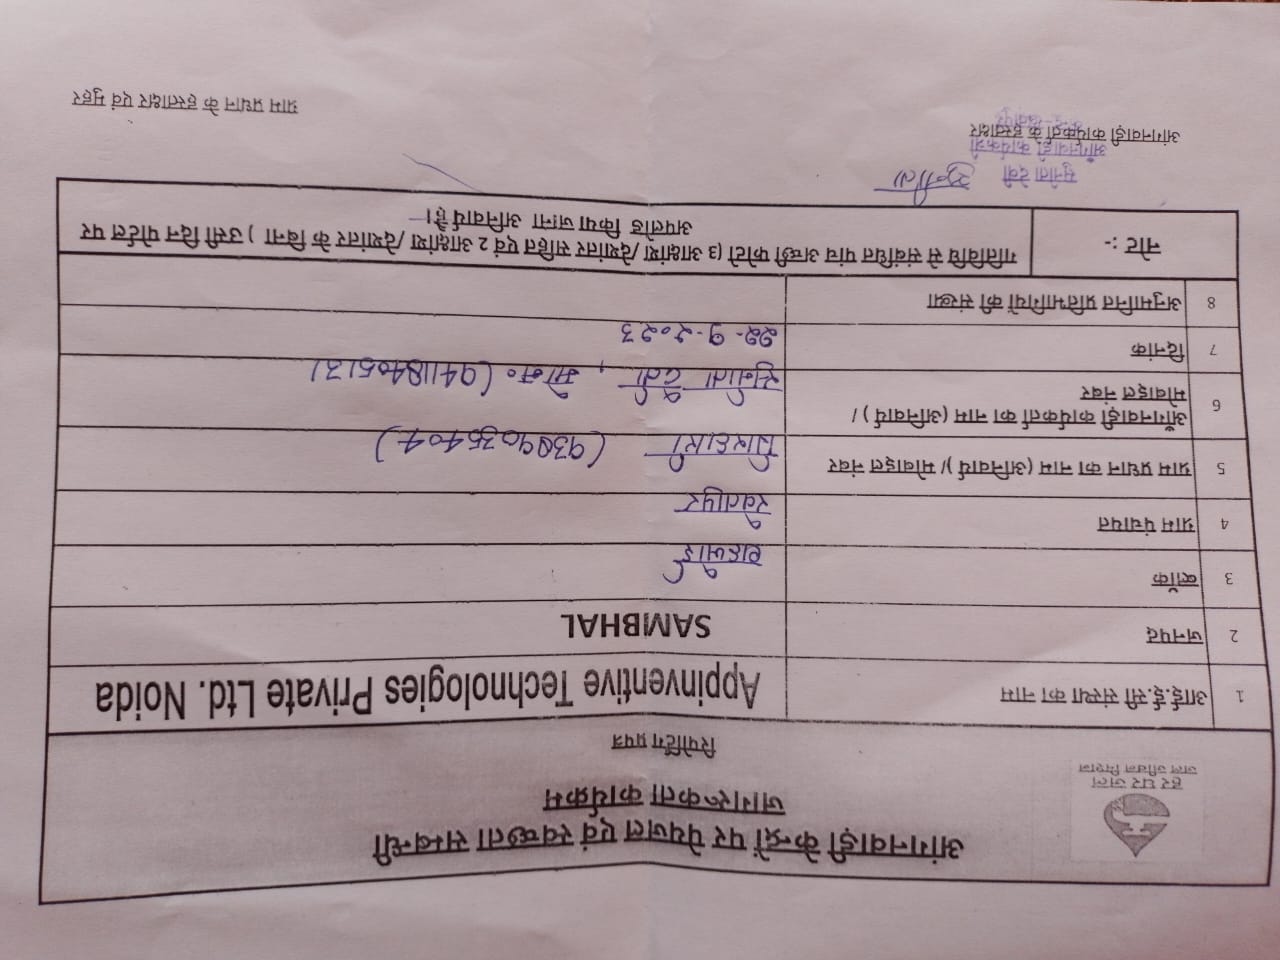 हर घर जल
जल जीवन मिशन
आंगनवाड़ी केन्द्रों पर पेयजल एवं स्वच्छता सम्बन्धी
जागरूकता कार्यक्रम
रिपोर्टिंग प्रपत्र
1 आई.ई.सी संस्था का नाम Appinventive Technologies Private Ltd. Noida
2 जनपद SAMBHAL
3 ब्लॉक
4 ग्राम पंचायत
5 ग्राम प्रधान का नाम (अनिवार्य )/ मोबाइल नंबर गिरधारी
6 आँगनवाड़ी कार्यकर्ता का नाम (अनिवार्य ) / सुनीता देवी, मो०न० (9411840513)
मोबाइल नंबर
7 दिनांक 22-9-2023
8 अनुमानित प्रतिभागियों की संख्या
नोट :- गतिविधि से संबंधित पांच अच्छी फोटो (3 आक्षांश/देशांतर सहित एवं 2 आक्षांश/देशांतर के बिना ) उसी दिन पोर्टल पर
अपलोड किया जाना अनिवार्य है।
सुनीता
सुनीता देवी
आँगनवाड़ी कार्यकत्री
आंगनवाड़ी कार्यकर्ता के हस्ताक्षर
ग्राम प्रधान के हस्ताक्षर एवं मुहर